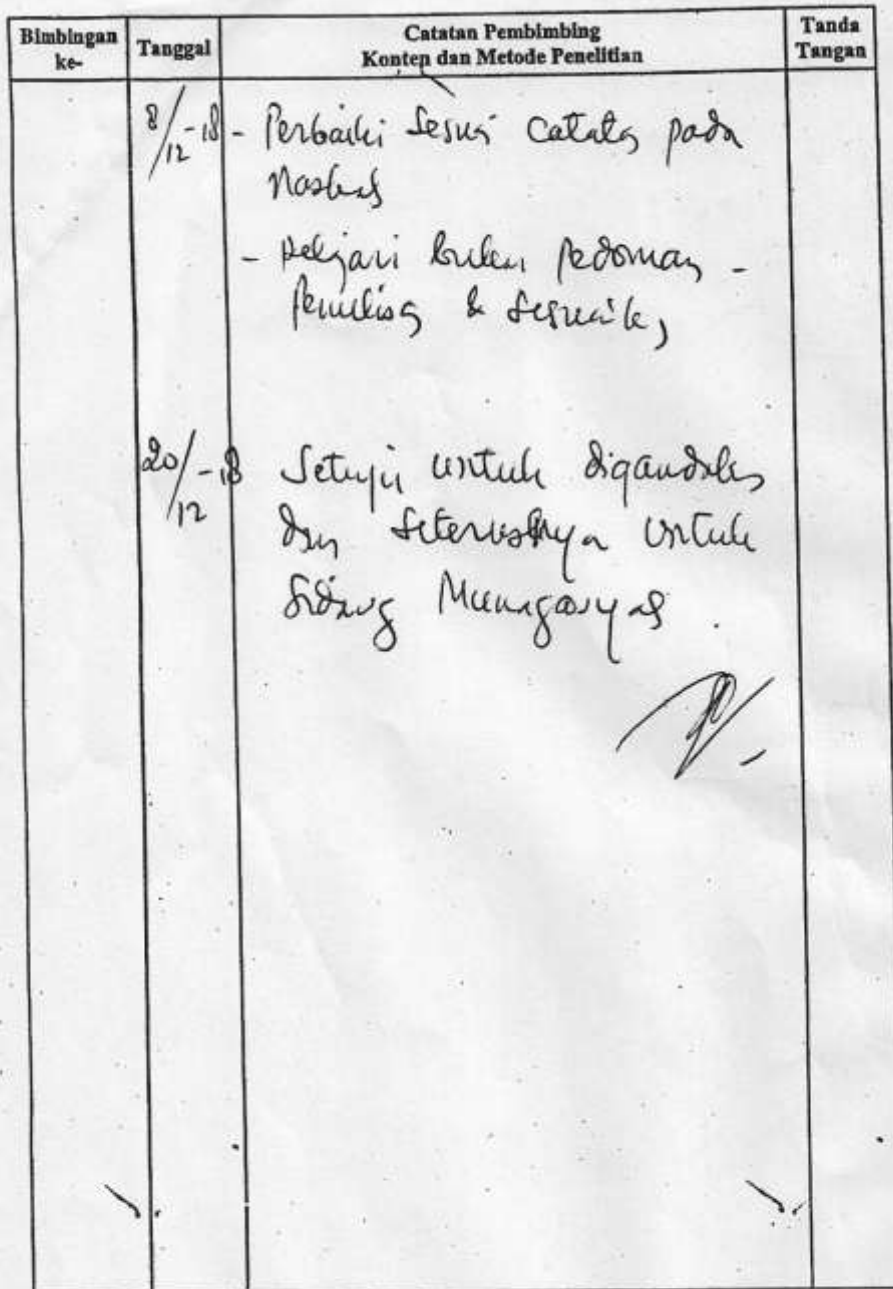 Bimbingan ke-
Tanggal
Catatan Pembimbing
Konten dan Metode Penelitian
Tanda Tangan
8/12-18 - Perbaiki sesuai catatan pada
naskah
- Pelajari buku pedoman -
penulisan & sesuaikan
20/12-18 Setuju untuk digandakan
dan seterusnya untuk
sidang Munaqasyas